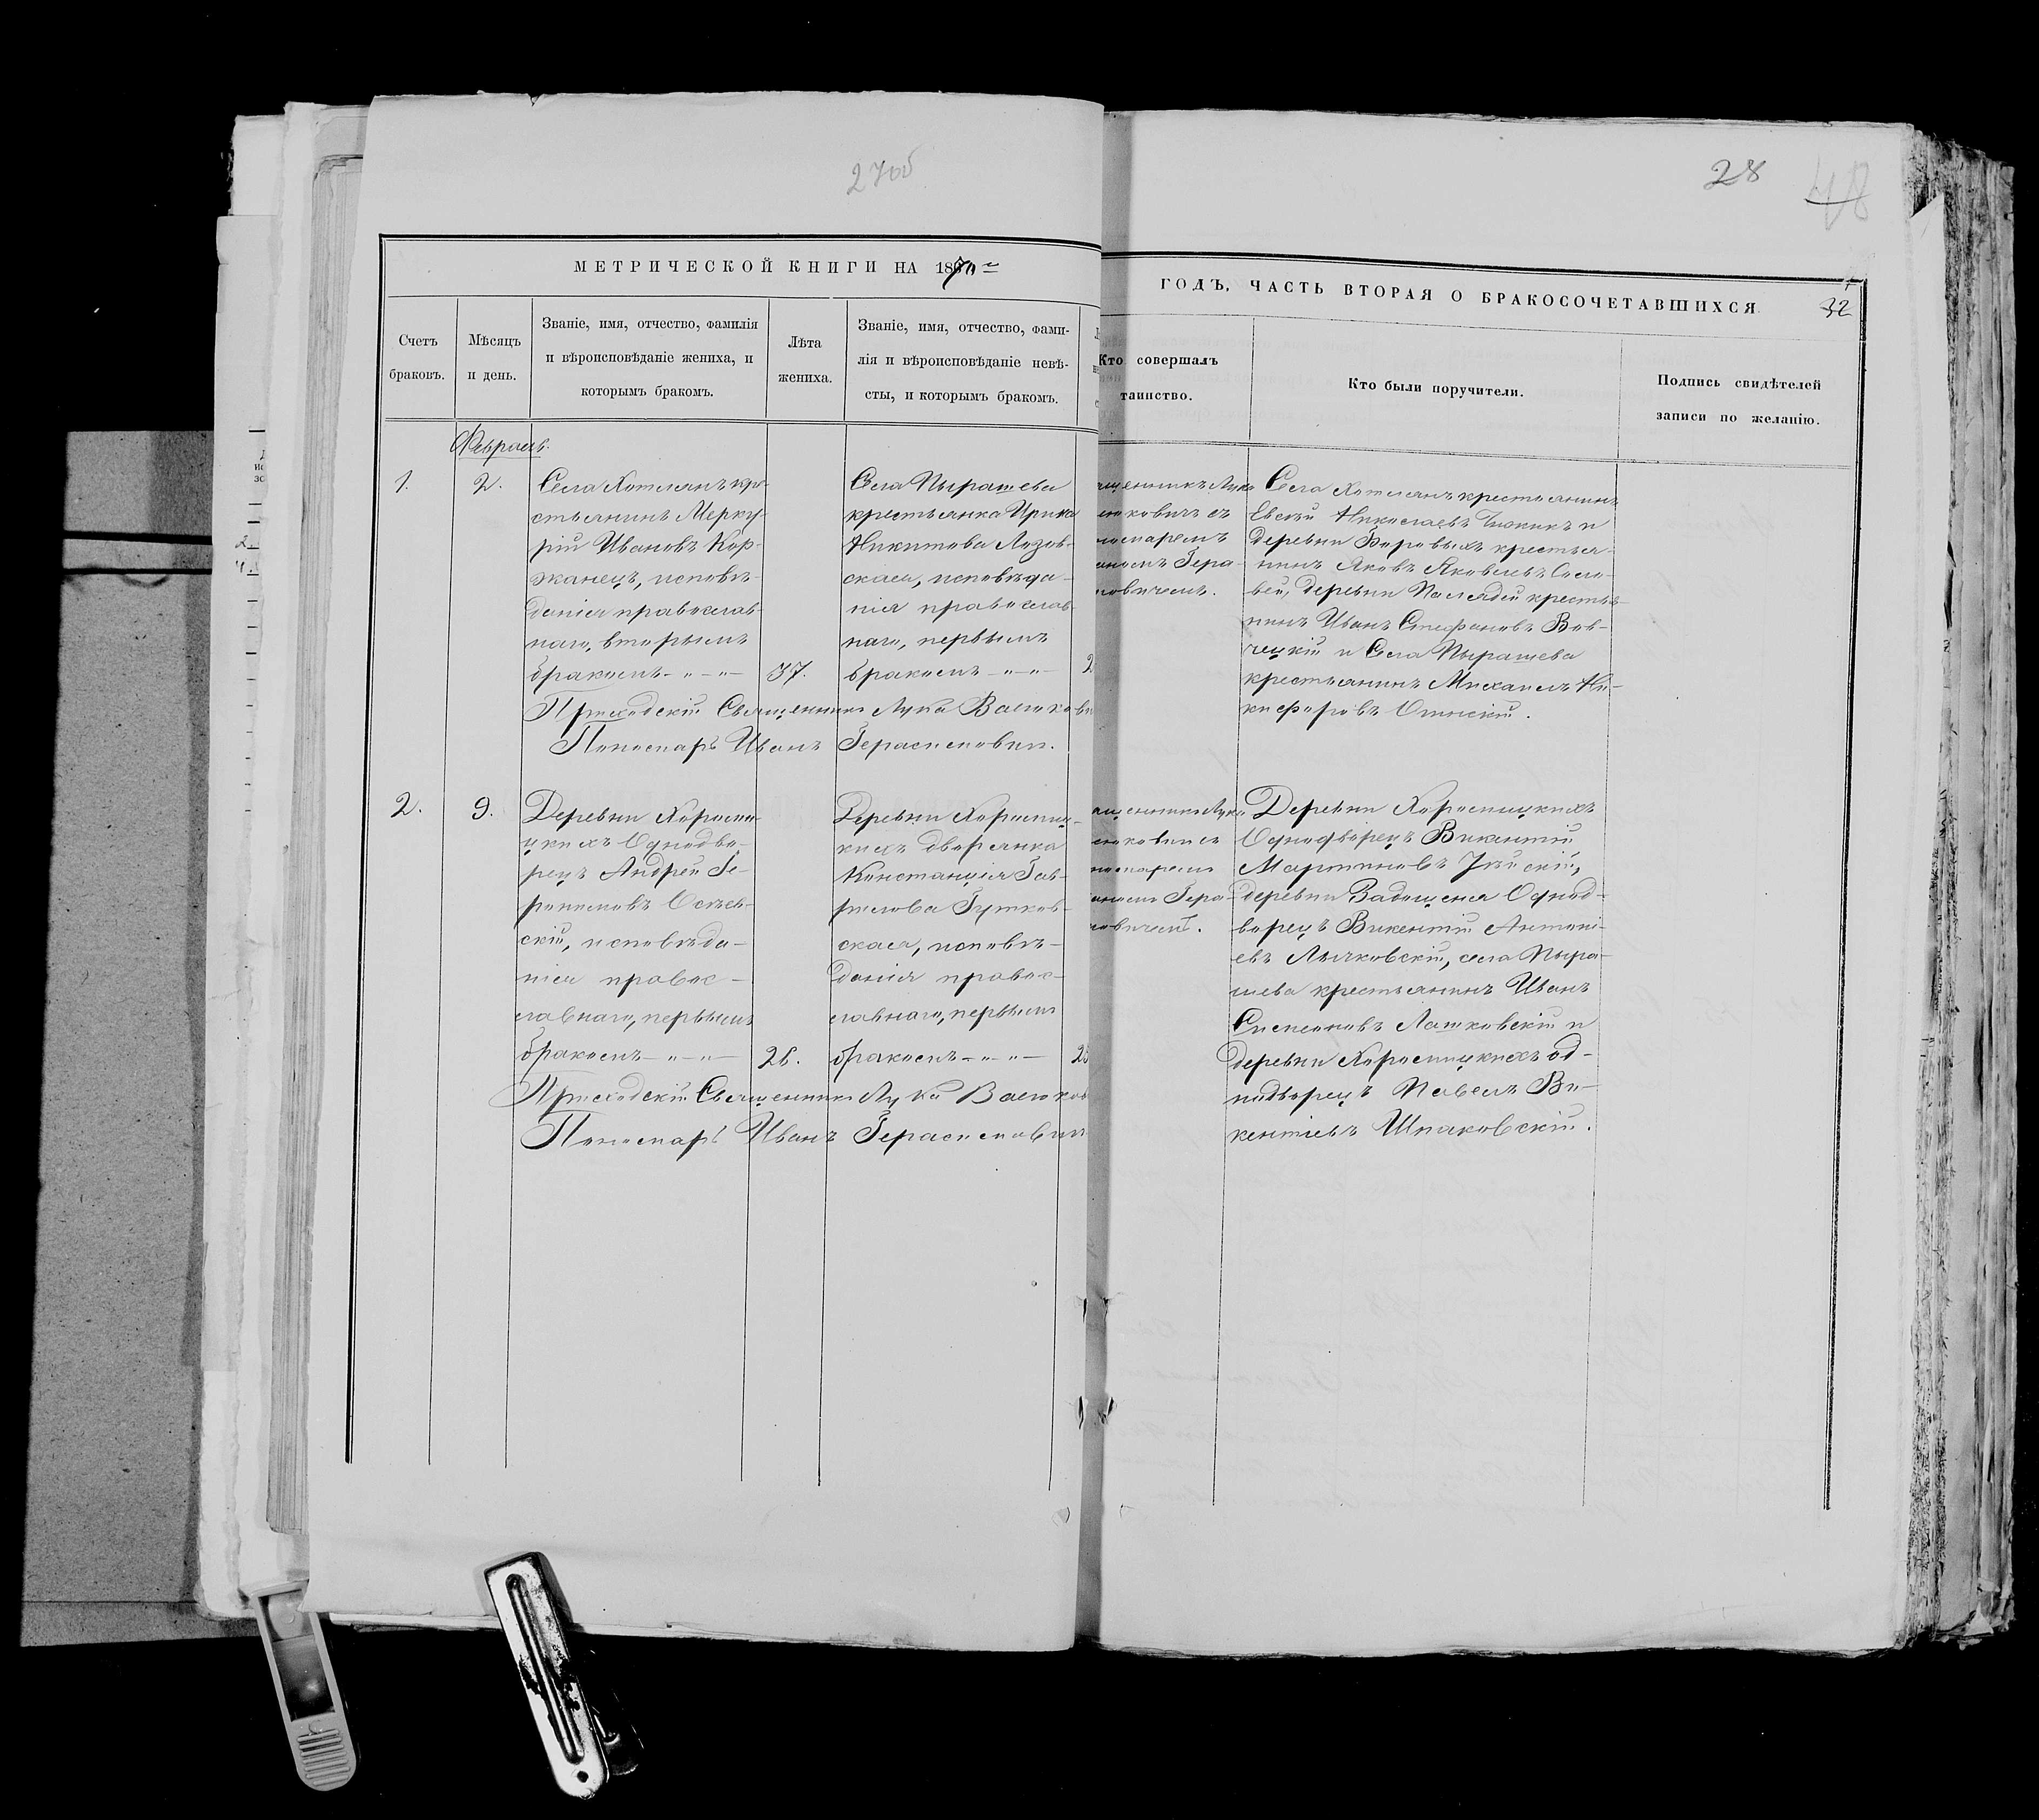 27об
28
48
МЕТРИЧЕСКОЙ КНИГИ НА 1870 е
ГОДЪ, ЧАСТЬ ВТОРАЯ О БРАКОСОЧЕТАВШИХСЯ
32
Счетъ
браковъ.
Мѣсяцъ
и день.
Званіе, имя, отчество, фамилія
и вѣроисповѣданіе жениха, и
которымъ бракомъ.
Лѣта
жениха.
Званіе, имя, отчество, фами-
лія и вѣроисповѣданіе невѣ-
сты, и которымъ бракомъ.
Кто совершалъ
таинство.
Кто были поручители.
Подпись свидѣтелей
записи по желанію.
Февраль.
1.
2.
Села Хотлянъ кре-
стьянинъ Мерку-
рій Ивановъ Кор-
жанецъ, исповѣ-
данія православ-
наго, вторымъ
бракомъ - " - " -
37.
Села Пырашева
крестьянка Ирина
Никитова Лозов-
ская, исповѣда-
нія православ-
наго, первымъ
бракомъ - " - " -
2
ященникъ Лука
юковичъ съ
номаремъ
аномъ Гера-
овичемъ.
Села Хотлянъ крестьянинъ
Евсѣй Николаевъ и
деревни Боровыхъ крестья-
нинъ Яковъ Яковлевъ Соло-
вей, деревни крестья-
нинъ Иванъ Стефановъ Вов-
чецкій и Села Пырашева
крестьянинъ Михаилъ Ни-
кифоровъ
Приходскій Священникъ Лука Васюкови
Пономарь Иванъ Герасимовичъ.
2.
9.
Деревни Хороши-
цкихъ Однодво-
рецъ Андрей Ге-
ронимовъ
скій, исповѣда-
нія правос-
лавнаго, первымъ
бракомъ - " - " -
26.
Деревни Хорошиц-
кихъ дворянка
Констанція Гав-
рилова Гутков-
ская, исповѣ-
данія правос-
лавнаго, первымъ
бракомъ - " - " -
2
ященникъ Лука
юковичъ съ
номаремъ
аномъ Гера-
овичемъ.
Деревни Хорошицкихъ
Однодворецъ Викентій
Мартиновъ
деревни Задощеня Однод-
ворецъ Викентій Антоні-
евъ села Пыра-
шева крестьянинъ Иванъ
Симеоновъ Лашковскій и
деревни Хорошицкихъ од-
нодворецъ Павелъ Ви-
кентіевъ Шпаковскій.
Приходскій Священникъ Лука Васюков
Пономарь Иванъ Герасимовичъ